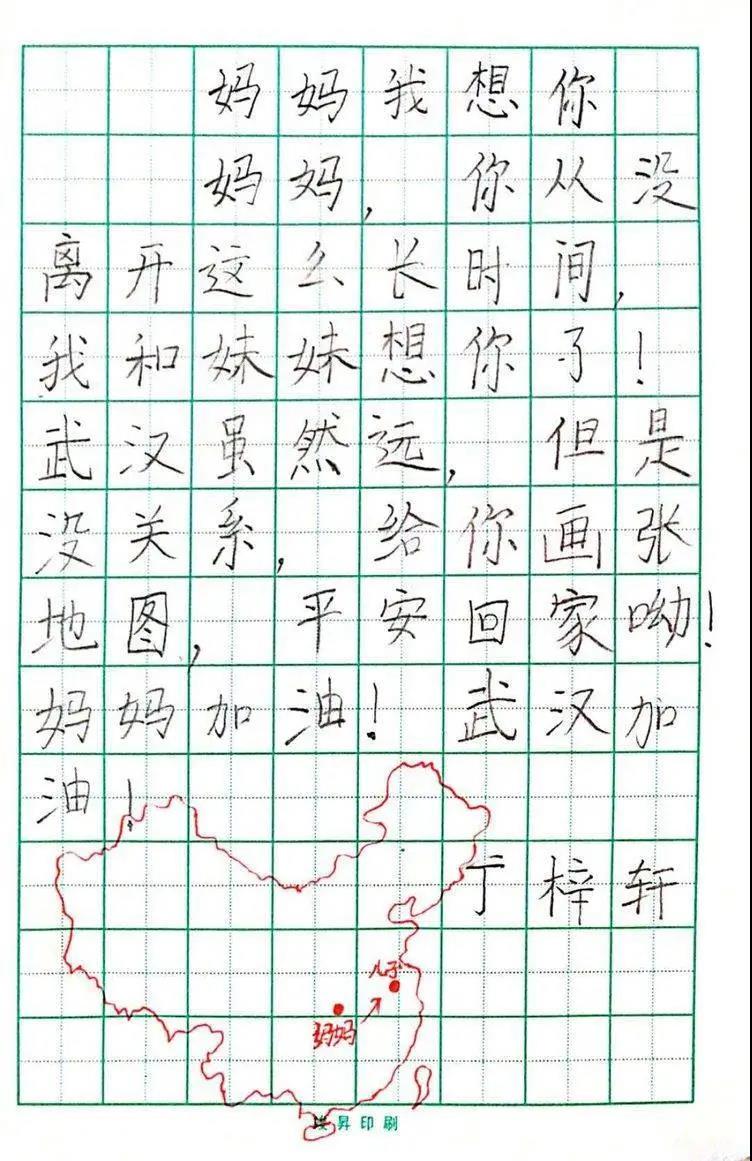 妈妈我想你
妈妈，你从没
离开这么长时间，
我和妹妹想你了！
武汉虽然远，但是
没关系，给你画张
地图，平安回家呦！
妈妈加油！武汉加
油！
丁梓轩
儿子
妈妈
昇印刷